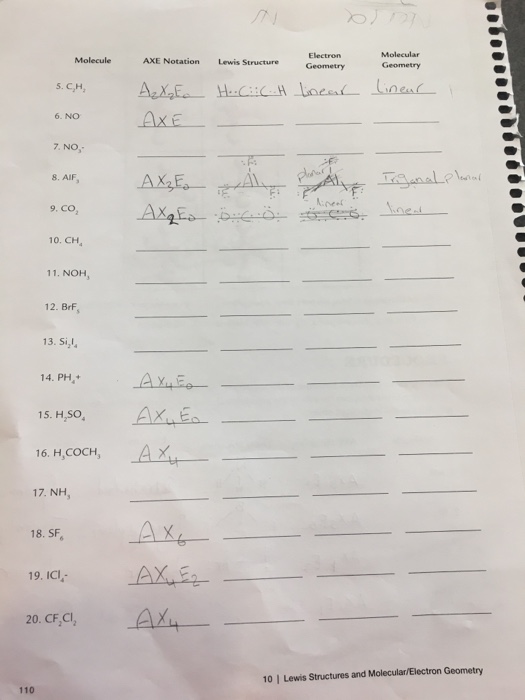 Molecule AXE Notation Lewis Structure Electron Geometry Molecular Geometry
5. C₂H₂ A₂X₂E₀ H··C:::C··H linear linear
6. NO AXE
7. NO₃-
8. AlF₃ AX₃E₀ :F: Al F: :F planar F Al F: F: Trigonal planar
9. CO₂ AX₂E₀ :O::C::O: linear O C O linear
10. CH₄
11. NOH₃
12. BrF₅
13. Si₂I₄
14. PH₄+ AX₄E₀
15. H₂SO₄ AX₄E₀
16. H₃COCH₃ AX₄
17. NH₃
18. SF₆ AX₆
19. ICl₄- AX₄E₂
20. CF₂Cl₂ AX₄
10 | Lewis Structures and Molecular/Electron Geometry
110